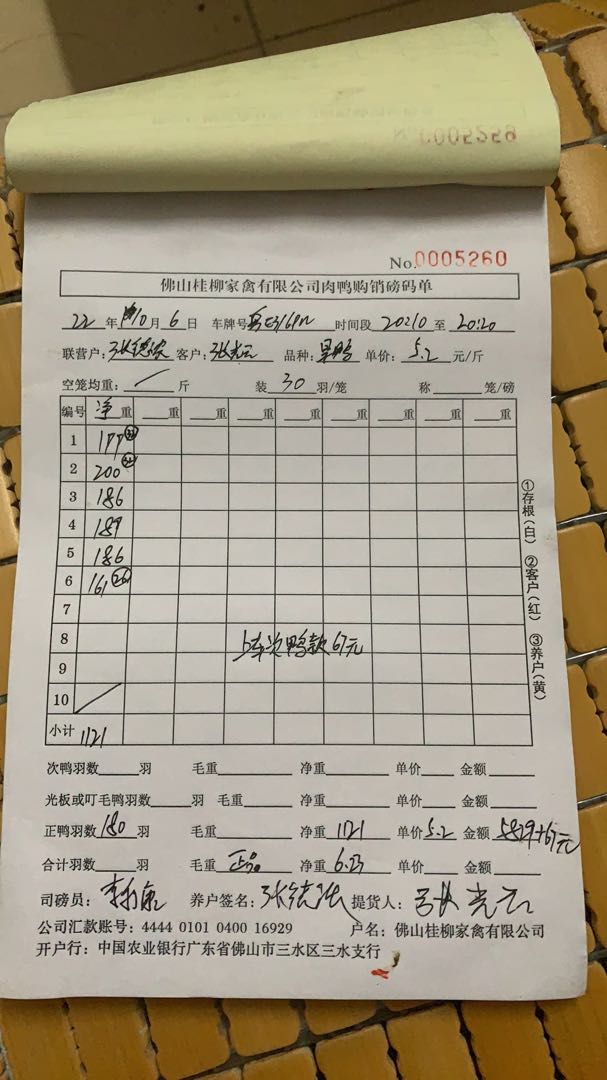 No.0005259
No.0005260
佛山桂柳家禽有限公司肉鸭购销磅码单
22年10月6日 车牌号 时间段 20210 至 20:20
联营户: 客户: 品种: 单价: 5.2 元/斤
空笼均重: / 斤 装 30 羽/笼 称 笼/磅
编号 净重 重 重 重 重 重 重 重 重
1 177
2 200
3 186
4 187
5 186
6 161 26
7
8 次鸭款 67元
9
10
小计 1121
①存根(白) ②客户(红) ③养户(黄)
次鸭羽数 羽 毛重 净重 单价 金额
光板或叮毛鸭羽数 羽 毛重 净重 单价 金额
正鸭羽数 180 羽 毛重 净重 1121 单价 5.2 金额 5829+67元
合计羽数 羽 毛重 正品 净重 6.23 单价 金额
司磅员: 养户签名: 提货人:
公司汇款账号: 4444 0101 0400 16929 户名: 佛山桂柳家禽有限公司
开户行: 中国农业银行广东省佛山市三水区三水支行